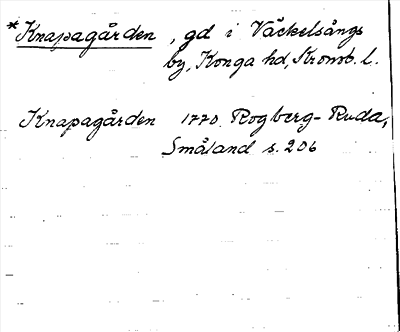 *Knapagården, gd i Väckelsångs
by, Konga hd, Kronob. l.
Knapagården 1770. Rogberg-Ruda,
Småland s. 206